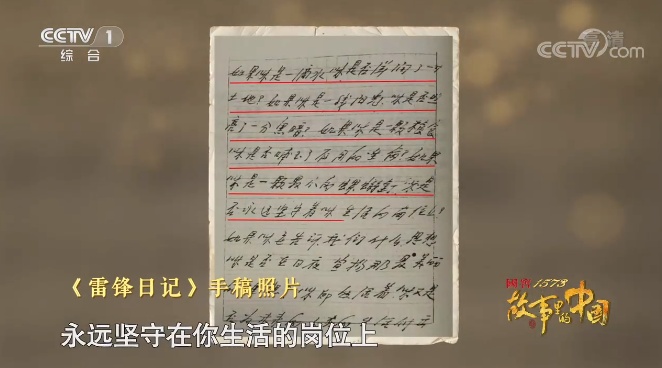 CCTV 1
综合
CCTV.com
高清
如果你是一滴水,你是否滋润了一寸
土地?如果你是一线阳光,你是否照
亮了一分黑暗?如果你是一颗粮食
你是否哺育了有用的生命?如果
你是一颗最小的螺丝钉,你是
否永远坚守着你生活的岗位?
如果你要告诉我们什么思想
你是否在日夜宣扬那最美丽
《雷锋日记》手稿照片
永远坚守在你生活的岗位上
国窖1573
故事里的中国